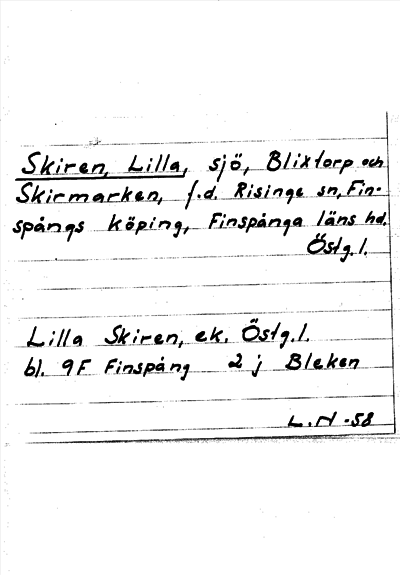 Skiren, Lilla, sjö, Blixtorp och
Skirmarken, f.d. Risinge sn, Fin-
spångs köping, Finspånga läns hd.
Östg.l.
Lilla Skiren, ek. Östg.l.
bl. 9F Finspång 2 j Bleken
L.N -58